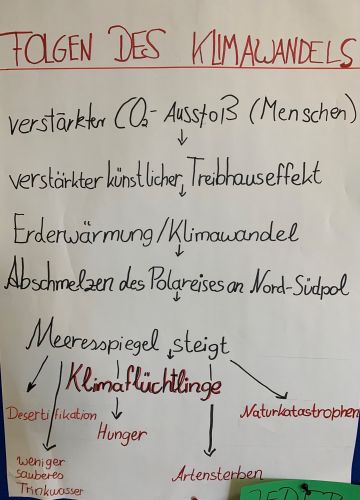 FOLGEN DES KLIMAWANDELS
verstärkter CO₂-Ausstoß (Menschen)
↓
verstärkter künstlicher Treibhauseffekt
↓
Erderwärmung/Klimawandel
↓
Abschmelzen des Polareises an Nord-Südpol
↓
Meeresspiegel steigt
Klimaflüchtlinge
Desertifikation
Naturkatastrophen
Hunger
weniger
sauberes
Trinkwasser
Artensterben